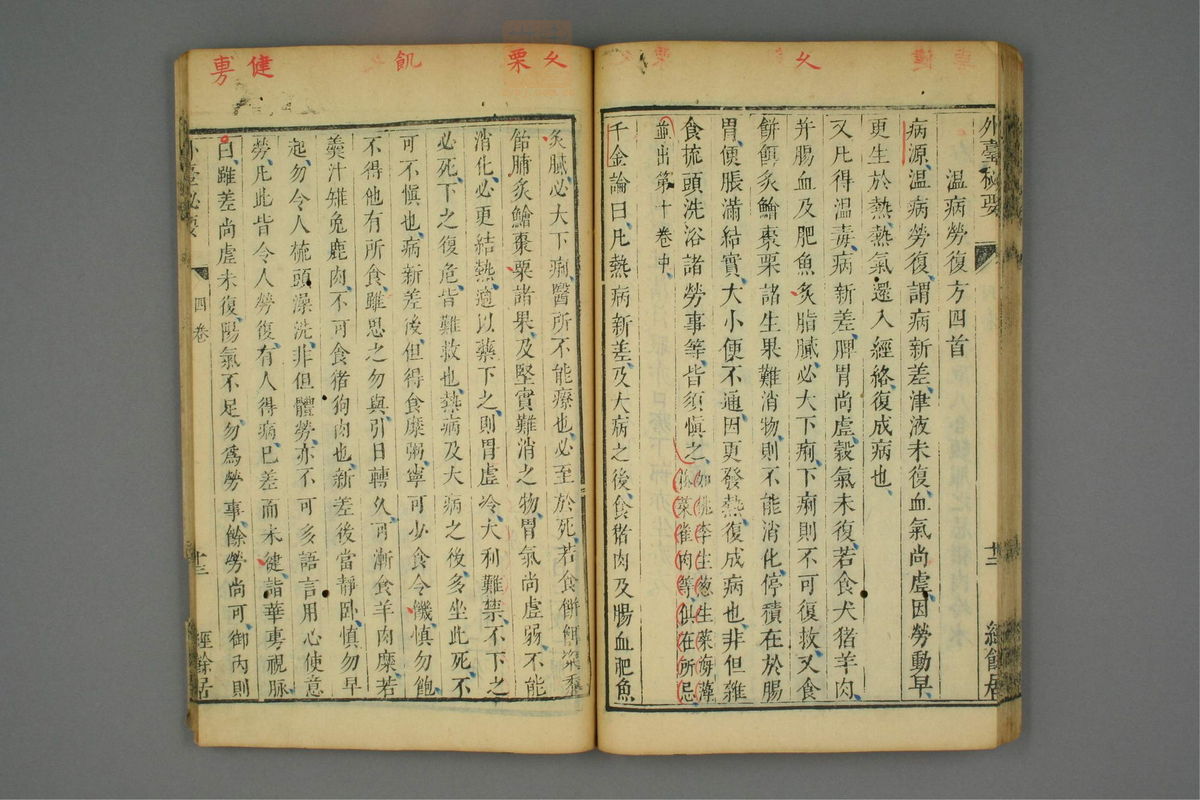 外臺秘要
溫病勞復方四首
病源溫病勞復謂病新差津液未復血氣尚虛因勞動早
更生於熱熱氣還入經絡復成病也
又凡得溫毒病新差脾胃尚虛穀氣未復若食犬猪羊肉
并腸血及肥魚炙脂膩必大下痢下痢則不可復救又食
餅餌炙鱠棗栗諸生果難消物則不能消化停積在於腸
胃便脹滿結實大小便不通因更發熱復成病也非但雜
食梳頭洗浴諸勞事等皆須愼之 桃李生葱生菜海藻
菜雀肉等俱在所忌
並出第十卷中
千金論曰凡熱病新差及大病之後食猪肉及腸血肥魚
十三
經餘居
夊
夊
栗
飢
健
旉
炙膩必大下痢醫所不能療也必至於死若食餅餌粢黍
飴脯炙鱠棗栗諸果及堅實難消之物胃氣尚虛弱不能
消化必更結熱適以藥下之則胃虛冷大利難禁不下之
必死下之復危皆難救也熱病及大病之後多坐此死不
可不愼也病新差後但得食糜粥寧可少食令饑愼勿飽
不得他有所食雖思之勿與引日轉久可漸食羊肉糜若
羹汁雉兔鹿肉不可食猪狗肉也新差後當靜卧愼勿早
起勿令人梳頭澡洗非但體勞亦不可多語言用心使意
勞凡此皆令人勞復有人得病已差而未健詣華旉視脉
曰雖差尚虛未復陽氣不足勿爲勞事餘勞尚可御內則
外臺秘要
四卷
十三
經餘居